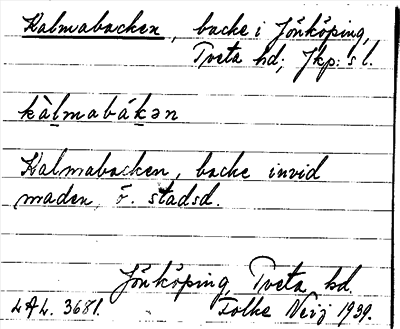 Kalmabacken, backe i Jönköping,
Tveta hd; Jkp: s l.
kàlmabákən
Kalmabacken, backe invid
maden, ö. stadsd.
Jönköping, Tveta hd.
LAL. 3681. Folke Neij 1939.